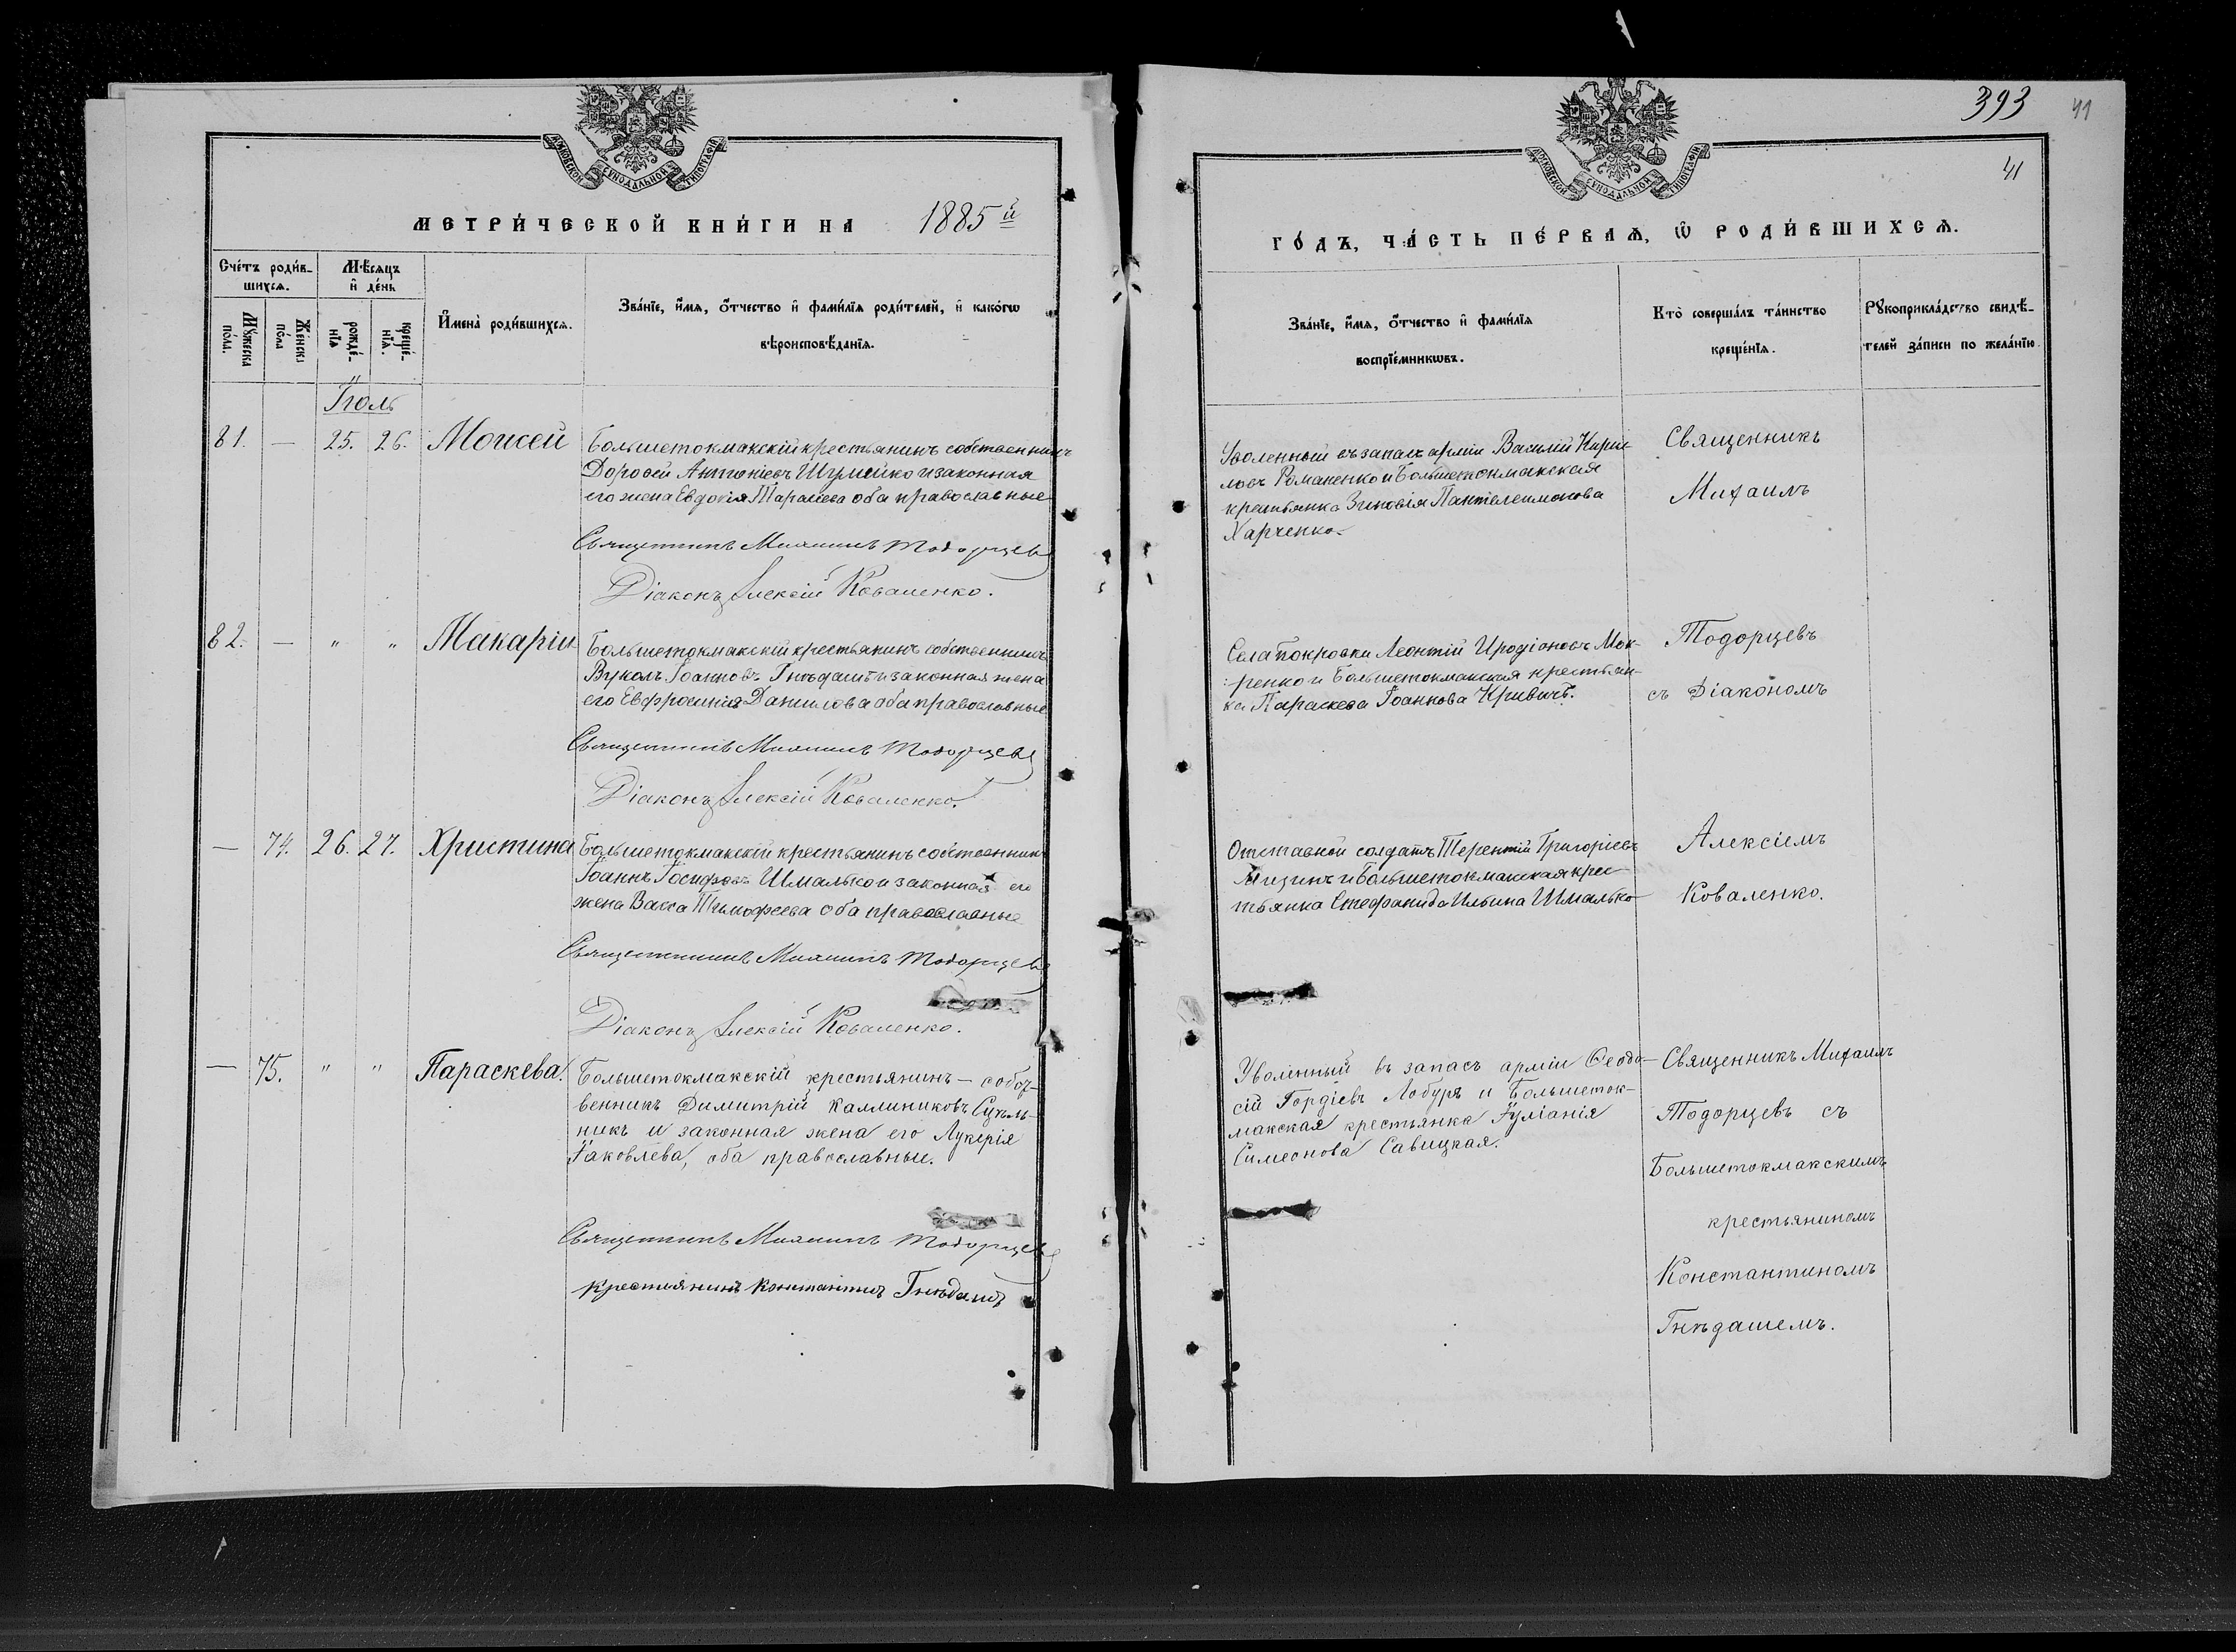 393 41
41
МОСКОВСКОЙ СѴНОДАЛЬНОЙ ТИПОГРАФІИ
МЕТРИ́ЧЕСКОЙ КНИ́ГИ НА 1885й
Сче́тъ роди́в-
шихся.
Мѣ́сяцъ
и҆ де́нь
Мꙋ́жеска
по́ла.
Же́нска
по́ла
рожде́-
нїя
креще́-
нїѧ.
И҆мена̀ роди́вшихсѧ.
Зва́нїе, и҆́мѧ, ѻ҆́тчество и҆ фами́лїѧ роди́телей, и҆ како́гѡ
вѣроисповѣ́данїѧ.
Іюль
81. — 25. 26. Моисей
Большетокмакскій крестьянинъ собственникъ
Дороѳей Антоніевъ Шулейко и законная
его жена Евдокія Тарасіева оба православные
Священникъ Михаилъ Тодорцевъ
Діаконъ Алексій Коваленко.
82. — " " Макарій
Большетокмакскій крестьянинъ собственникъ
Вуколъ Іоанновъ Гнѣдашъ и законная жена
его Евфросинія Данилова оба православные
Священникъ Михаилъ Тодорцевъ
Діаконъ Алексій Коваленко.
— 74. 26. 27. Христина
Большетокмакскій крестьянинъ собственникъ
Іоаннъ Іосифовъ Шмалько и законная его
жена Васса Тимофеева оба православные
Священникъ Михаилъ Тодорцевъ
Діаконъ Алексій Коваленко.
— 75. " " Параскева.
Большетокмакскій крестьянинъ — собст-
венникъ Димитрій Каллиниковъ Сукъль-
никъ и законная жена его Лукерія
Іаковлева, оба православные.
Священникъ Михаилъ Тодорцевъ
Крестиянинъ Константинъ Гнѣдашъ
МОСКОВСКОЙ СѴНОДАЛЬНОЙ ТИПОГРАФІИ
ГО́ДЪ, ЧА́СТЬ ПЕ́РВАѦ, Ѽ РОДИ́ВШИХСѦ.
Зва́нїе, и҆́мѧ, ѻ҆́тчество и҆ фами́лїѧ
воспрїе́мникѡвъ.
Кто̀ соверша́лъ та́инство
креще́нїѧ.
Рꙋкоприкла́дство свидѣ́-
телей за́писи по жела́нїю.
Уволенный въ запасъ арміи Василій Кирил
ловъ Романенко и Большетокмакская
крестьянка Зиновія Пантелеимонова
Харченко.
Села Покровки Леонтій Иродіоновъ Мок-
ренко и Большетокмакская крестьян-
ка Параскева Іоаннова Кривичъ.
Отставной солдатъ Терентій Григоріевъ
Мизинъ и Большетокмакская крес-
тьянка Стефанида Ильина Шмалько
Уволенный въ запасъ арміи Ѳеодо-
сій Гордіевъ Лобуръ и Большеток-
макская крестьянка Іуліанія
Симеонова Савицкая.
Священникъ
Михаилъ
Тодорцевъ
съ Діакономъ
Алексіемъ
Коваленко.
Священникъ Михаилъ
Тодорцевъ съ
Большетокмакскимъ
крестьяниномъ
Константиномъ
Гнѣдашемъ.